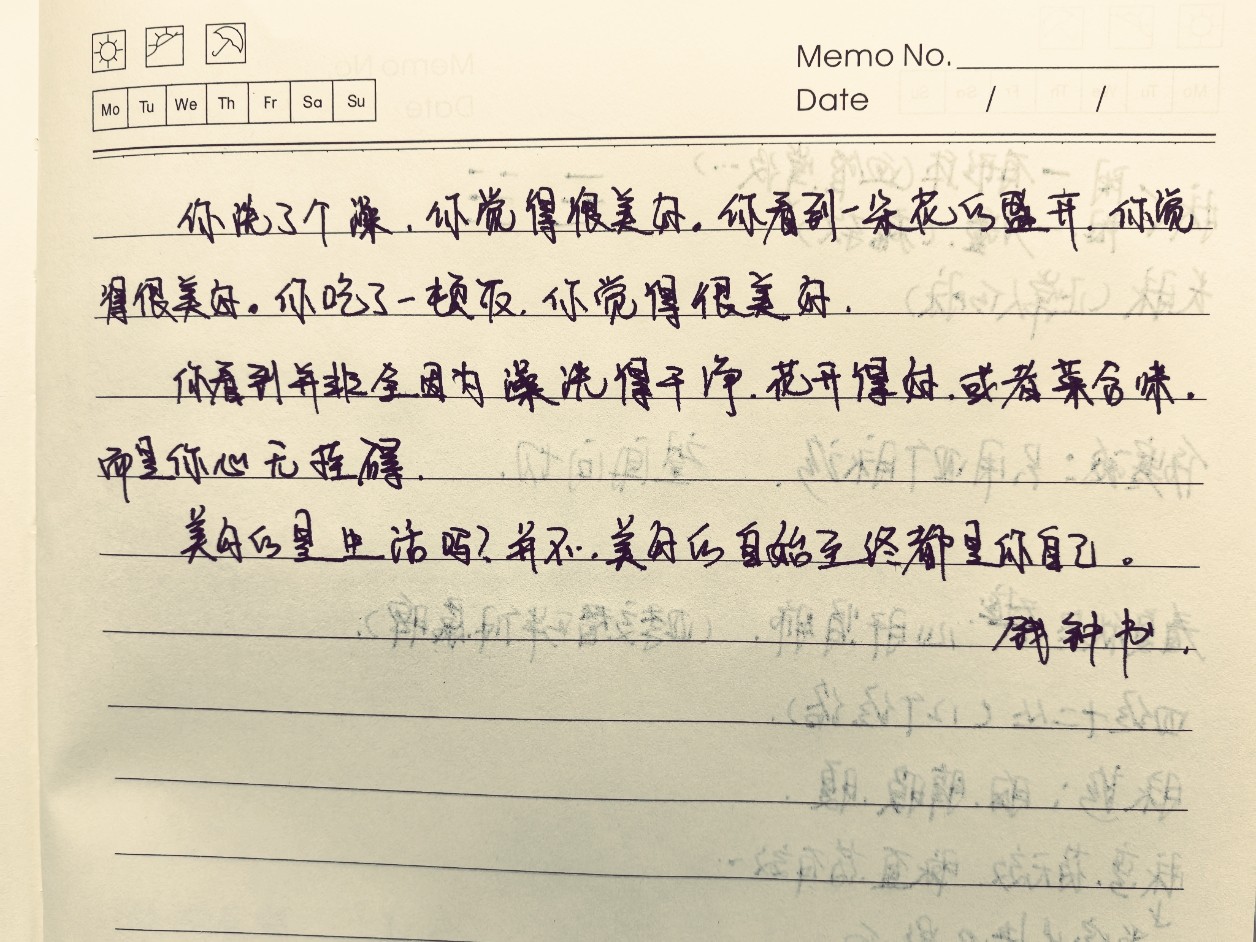 Memo No.
Mo Tu We Th Fr Sa Su
Date / /
你洗了个澡,你觉得很美好。你看到一朵花的盛开,你觉
得很美好。你吃了一顿饭,你觉得很美好.
你看到并非全因为澡洗得干净,花开得好,或者菜合味.
而是你心无挂碍.
美好的是生活吗?并不,美好的自始至终都是你自己。
钱钟书.